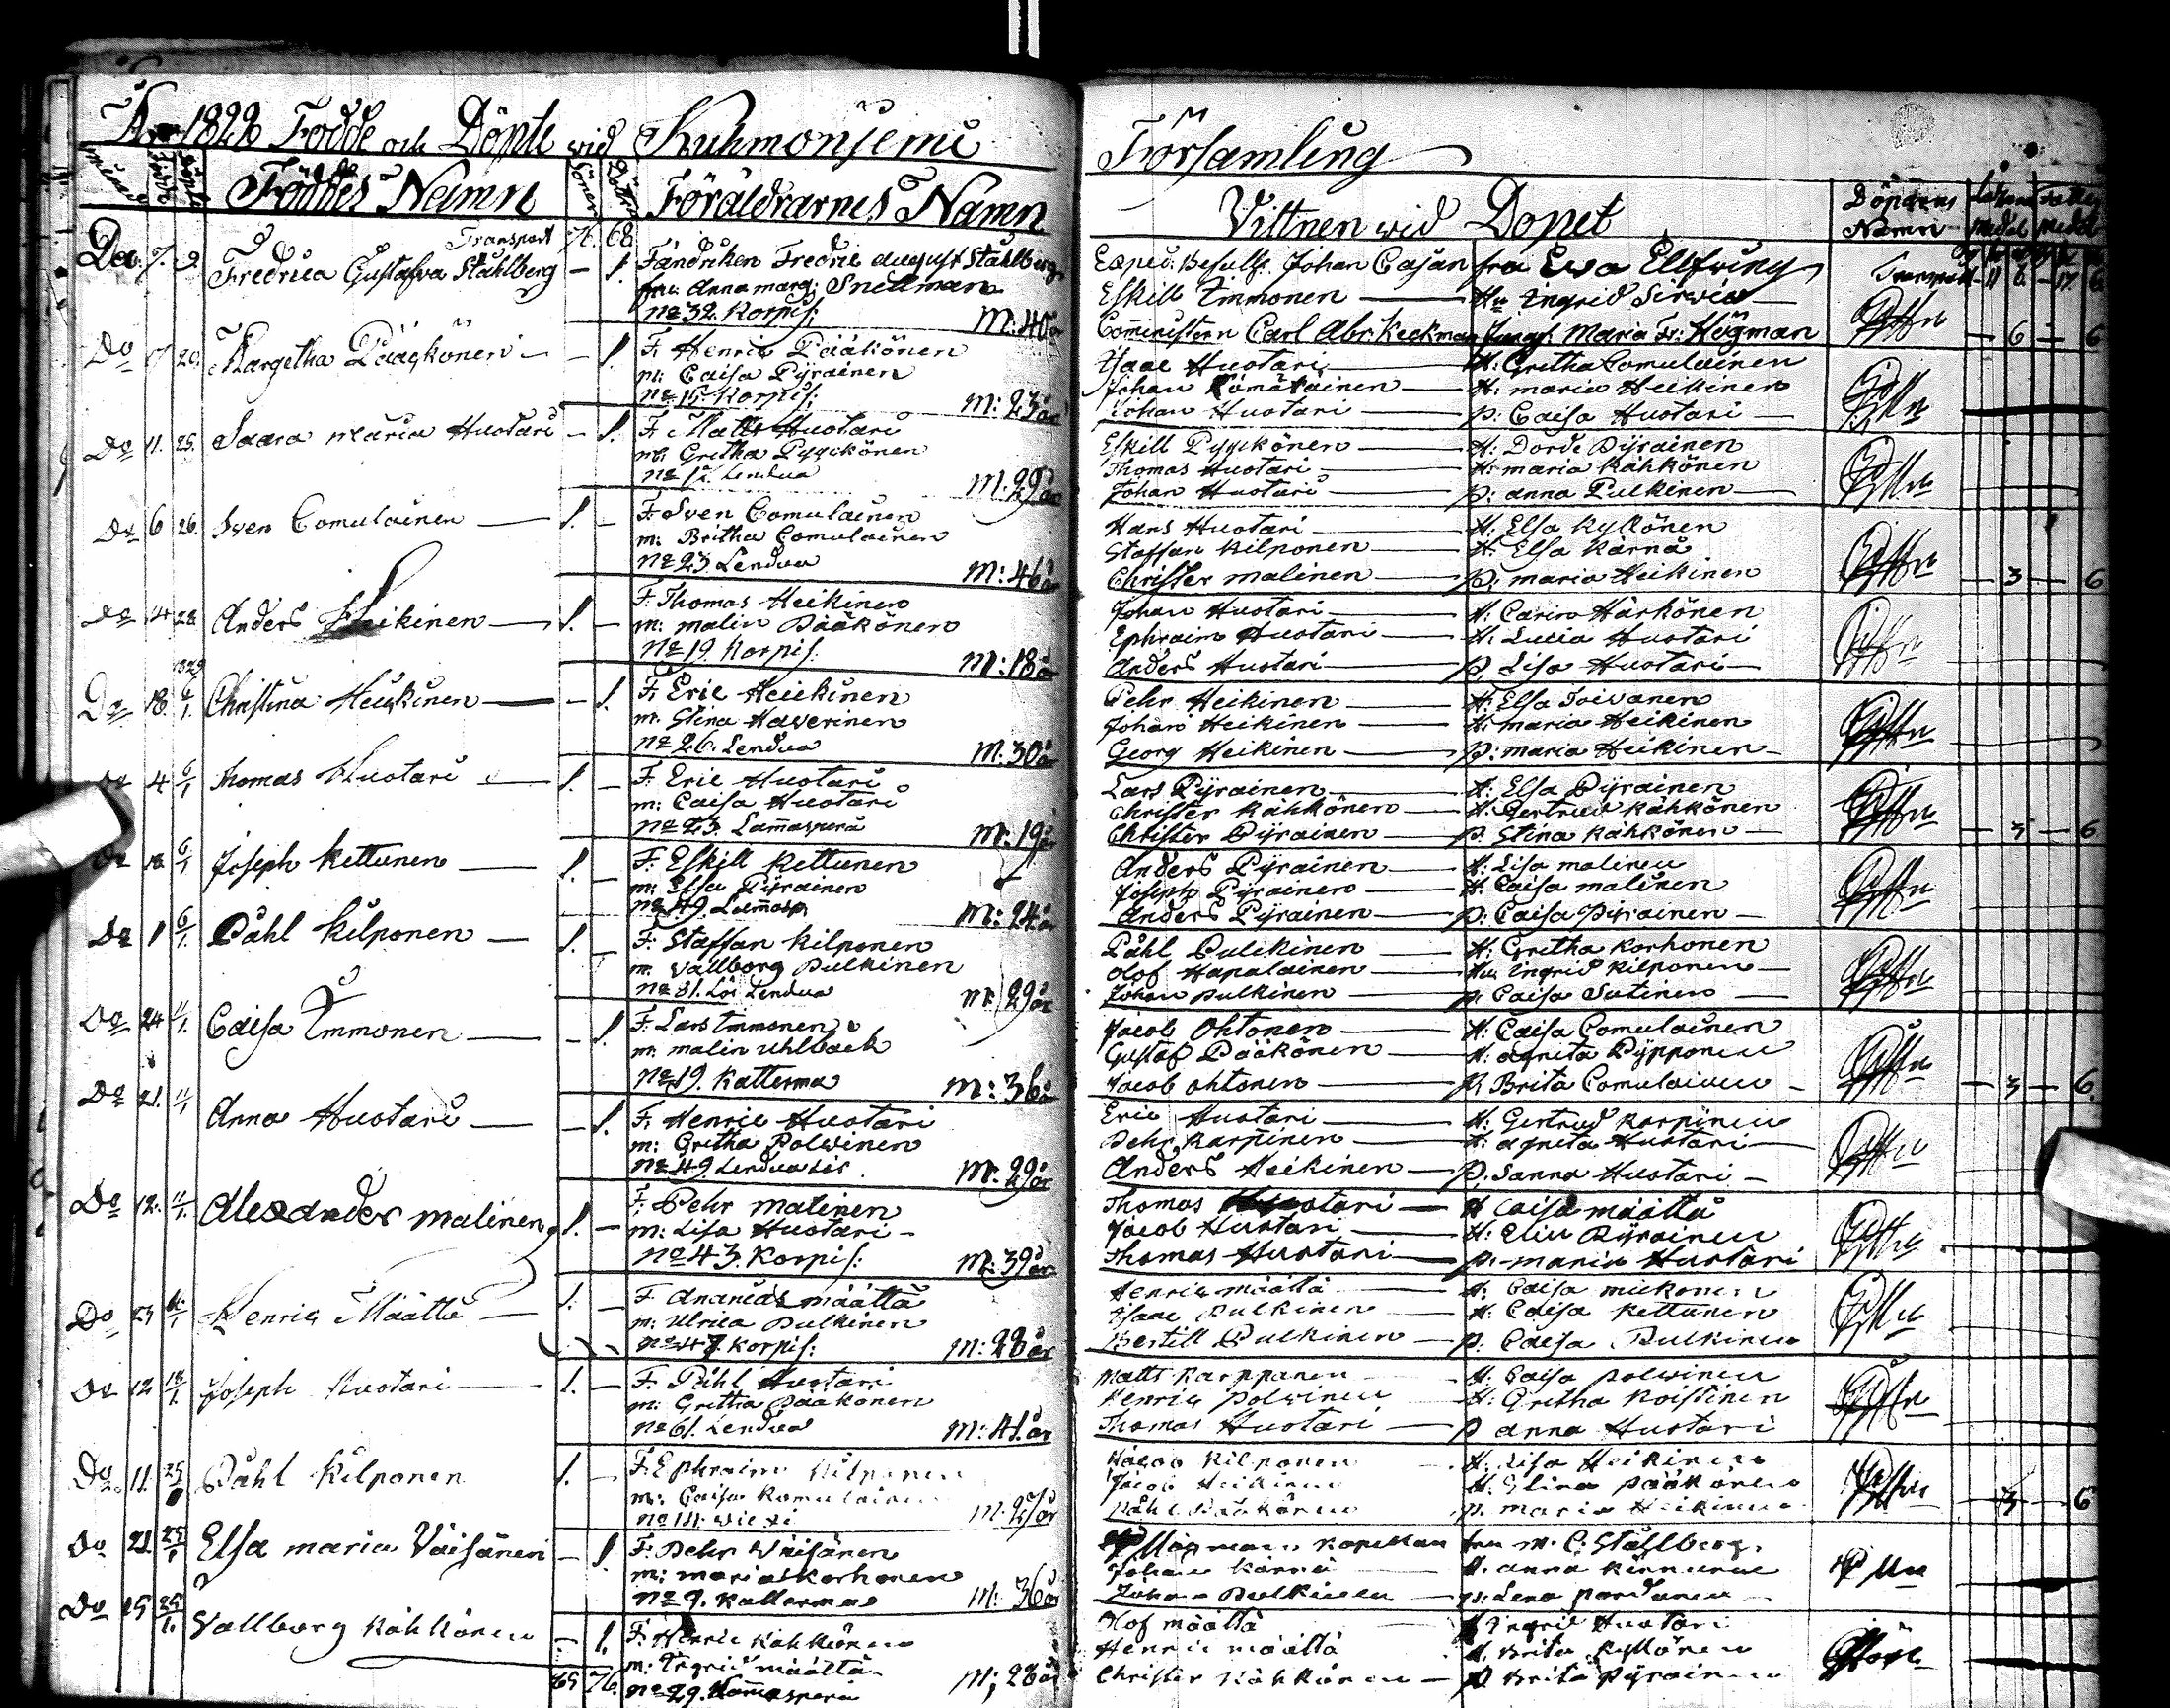 År 1828 Födde och Döpte wid Kuhmoniemi Församling
Födde DöpteFöddes Namn Söner Döttrar Föräldrarnes Namn
Vittnen wid Dopet Döparens Namn
Transport 76. 68
De: 7. 9 Fredrica Gustafva Ståhlberg — 1. Fändriken Fredric august Ståhlberg
fru: Anna marg: Snellman
No 32. Korpis: M: 40 år
Exped: Befulls: Johan Cajan fru Ewa Ellfving Transport
Eskill Immonen — Hu Ingrid Sirviö
Comministern Carl Abr: Keckman Jungf: Maria Fr: Högman — 6 — 6
Do 20. Margetha Pääkönen — 1. F. Henric Pääkönen
m: Caisa Pyrainen
No 15 Korpis: M: 23 år
Isaac Huotari — H: Gretha Comulainen
Johan — H: maria Heikinen
Johan Huotari — p: Caisa Huotari
Do 11. 25. Saara maria Huotari — 1. F. Matts Huotari
m: Gretha Pyyckönen
No 17. Lendua M: 29 år
Eskill Pyyckönen — H: Dorde Pyrainen
Thomas Huotari — H: maria Kähkönen
Johan Huotari — p: anna Pulkinen
Do 6 26. Sven Comulainen — 1. — F: Sven Comulainen
m: Britha Comulainen
No 23. Lendua M: 46 år
Hans Huotari — H: Elsa Kyllönen
Staffan Kilponen — H: Elsa Kärnä
Christer malinen — p: maria Heikinen — 3 — 6
Do 4 28. Anders Heikinen — 1. — F: Thomas Heikinen
m: malin Pääkönen
No 19. Korpis. M: 18 år
Johan Huotari — H: Carin Härkönen
Ephraim Huotari — H: Lucia Huotari
Anders Huotari — p. Lisa Huotari
1829
Do 18. 6/1. Christina Heickinen — 1. F. Eric Heickinen
m. Stina Haverinen
No 26. Lendua M. 30 år
Pehr Heikinen — H: Elsa Toivanen
Johan Heikinen — H: maria Heikinen
Georg Heikinen — p: maria Heikinen
Do 4 6/1 Thomas Huotari — 1. — F: Eric Huotari
m: Caisa Huotari
No 23. Lam̄asperä M: 19 år
Lars Pyrainen — H: Elsa Pyrainen
Christer Kähkönen — H: Gertrud Kähkönen
Christer Pyrainen — p. Stina Kähkönen — 3 — 6
Do 18 6/1 Joseph Kettunen — 1. — F: Eskill Kettunen
m: Elsa Pyrainen
No 49. Lam̄asp M: 24 år
Anders Pyrainen — H: Lisa malinen
Joseph Pyrainen — H: Caisa malinen
Anders Pyrainen — p: Caisa Pyrainen
Do 1 6/1. Påhl Kilponen — 1. — F: Staffan Kilponen
m. Vallborg Pulkinen
No 31. Lendua M: 29 år
Påhl Pulckinen — H: Gretha Korhonen
Olof Hapalainen — Hu Ingrid Kilponen
Johan Pulkinen — p: Caisa Sutinen
Do 24 11/1. Caisa Immonen — 1. F: Lars Immonen
m: malin Uhlback
No 19. Katterma M: 36 år
Jacob Ohtonen — H: Caisa Comulainen
Gustaf Pääkönen — H: agneta Pypponen
Jacob Ohtonen — p. Brita Comulainen — 3 — 6.
Do 21. 11/1 Anna Huotari — 1. F. Henric Huotari
m: Gretha Polvinen
No 49. Lendua M: 29 år
Eric Huotari — H: Gertrud Karpinen
Pehr Karpinen — H: agneta Huotari
Anders Heikinen — p. Sanna Huotari
Do 12. 11/1. Alexander malinen 1. — F: Pehr malinen
m: Lisa Huotari
No 43. Korpis: M: 39 år
Thomas Huotari — H Caisa määttä
Jacob Huotari — H: Elin Pyrainen
Thomas Huotari — p. maria Huotari
Do 23 Henric Määttä — 1. — F. Ananias määttä
m: Ulrica Pulkinen
No 47. Korpis: M: 28 år
Henric määttä — H: Caisa
Isaac Pulkinen — H: Caisa Kettunen
Bertill Pulkinen — p: Caisa Pulkinen
Do 12 18/1. Joseph Huotari — 1. — F. Påhl Huotari
m: Gretha Pääkönen
No 61. Lendua M: 41. år
Matts Karppanen — H: Caisa Polvinen
Henric Polvinen — H: Gretha Koistinen
Thomas Huotari — p anna Huotari
Do 11. 25 Påhl Kilponen 1. — F: Ephraim Kilponen
m: Caisa Komulainen
M. 27 år
Jacob Kilponen H. Lisa Heikinen
Jacob Heikinen H. Stina Pääkönen
Påhl Pääkönen p. maria Heikinen — 3 — 6
Do 21. 25/1 Elsa maria Väisänen — 1 F: Pehr Väisänen
m: maria Korhonen
No 9. Kattermae M: 36 år
Kapellan fru M. C. Ståhlberg
Johan Kärnä H. anna Kinnunen
Johan Pulkinen p: Lena
Do 25 25/1. Vallborg Kähkönen — 1. F: Henric Kähkönen
m: Ingrid määttä
No 29. Lam̄asperä M: 28 år
Olof määttä H Ingrid Huotari
Henric määttä H. Brita Kyllönen
Christer Kähkönen — p Brita Pyrainen
76.